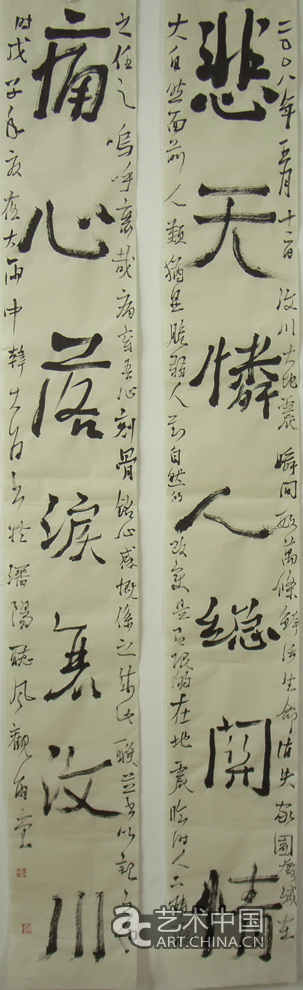 二〇〇八年五月十二日汶川大地震瞬間數萬條鮮活生命消失家園毀滅在
悲天憐人總關情
大自然面前人類猶是脆弱人對自然的改變是有限的在地震臨時人
之任之嗚呼哀哉痛吾心刻骨銘心感慨係之此聯並書以記
痛心落淚哀汶川
時戊子年夜值大雨中韓書於瀋陽聽風觀雨堂
艺术中国
ART.CHINA.CN